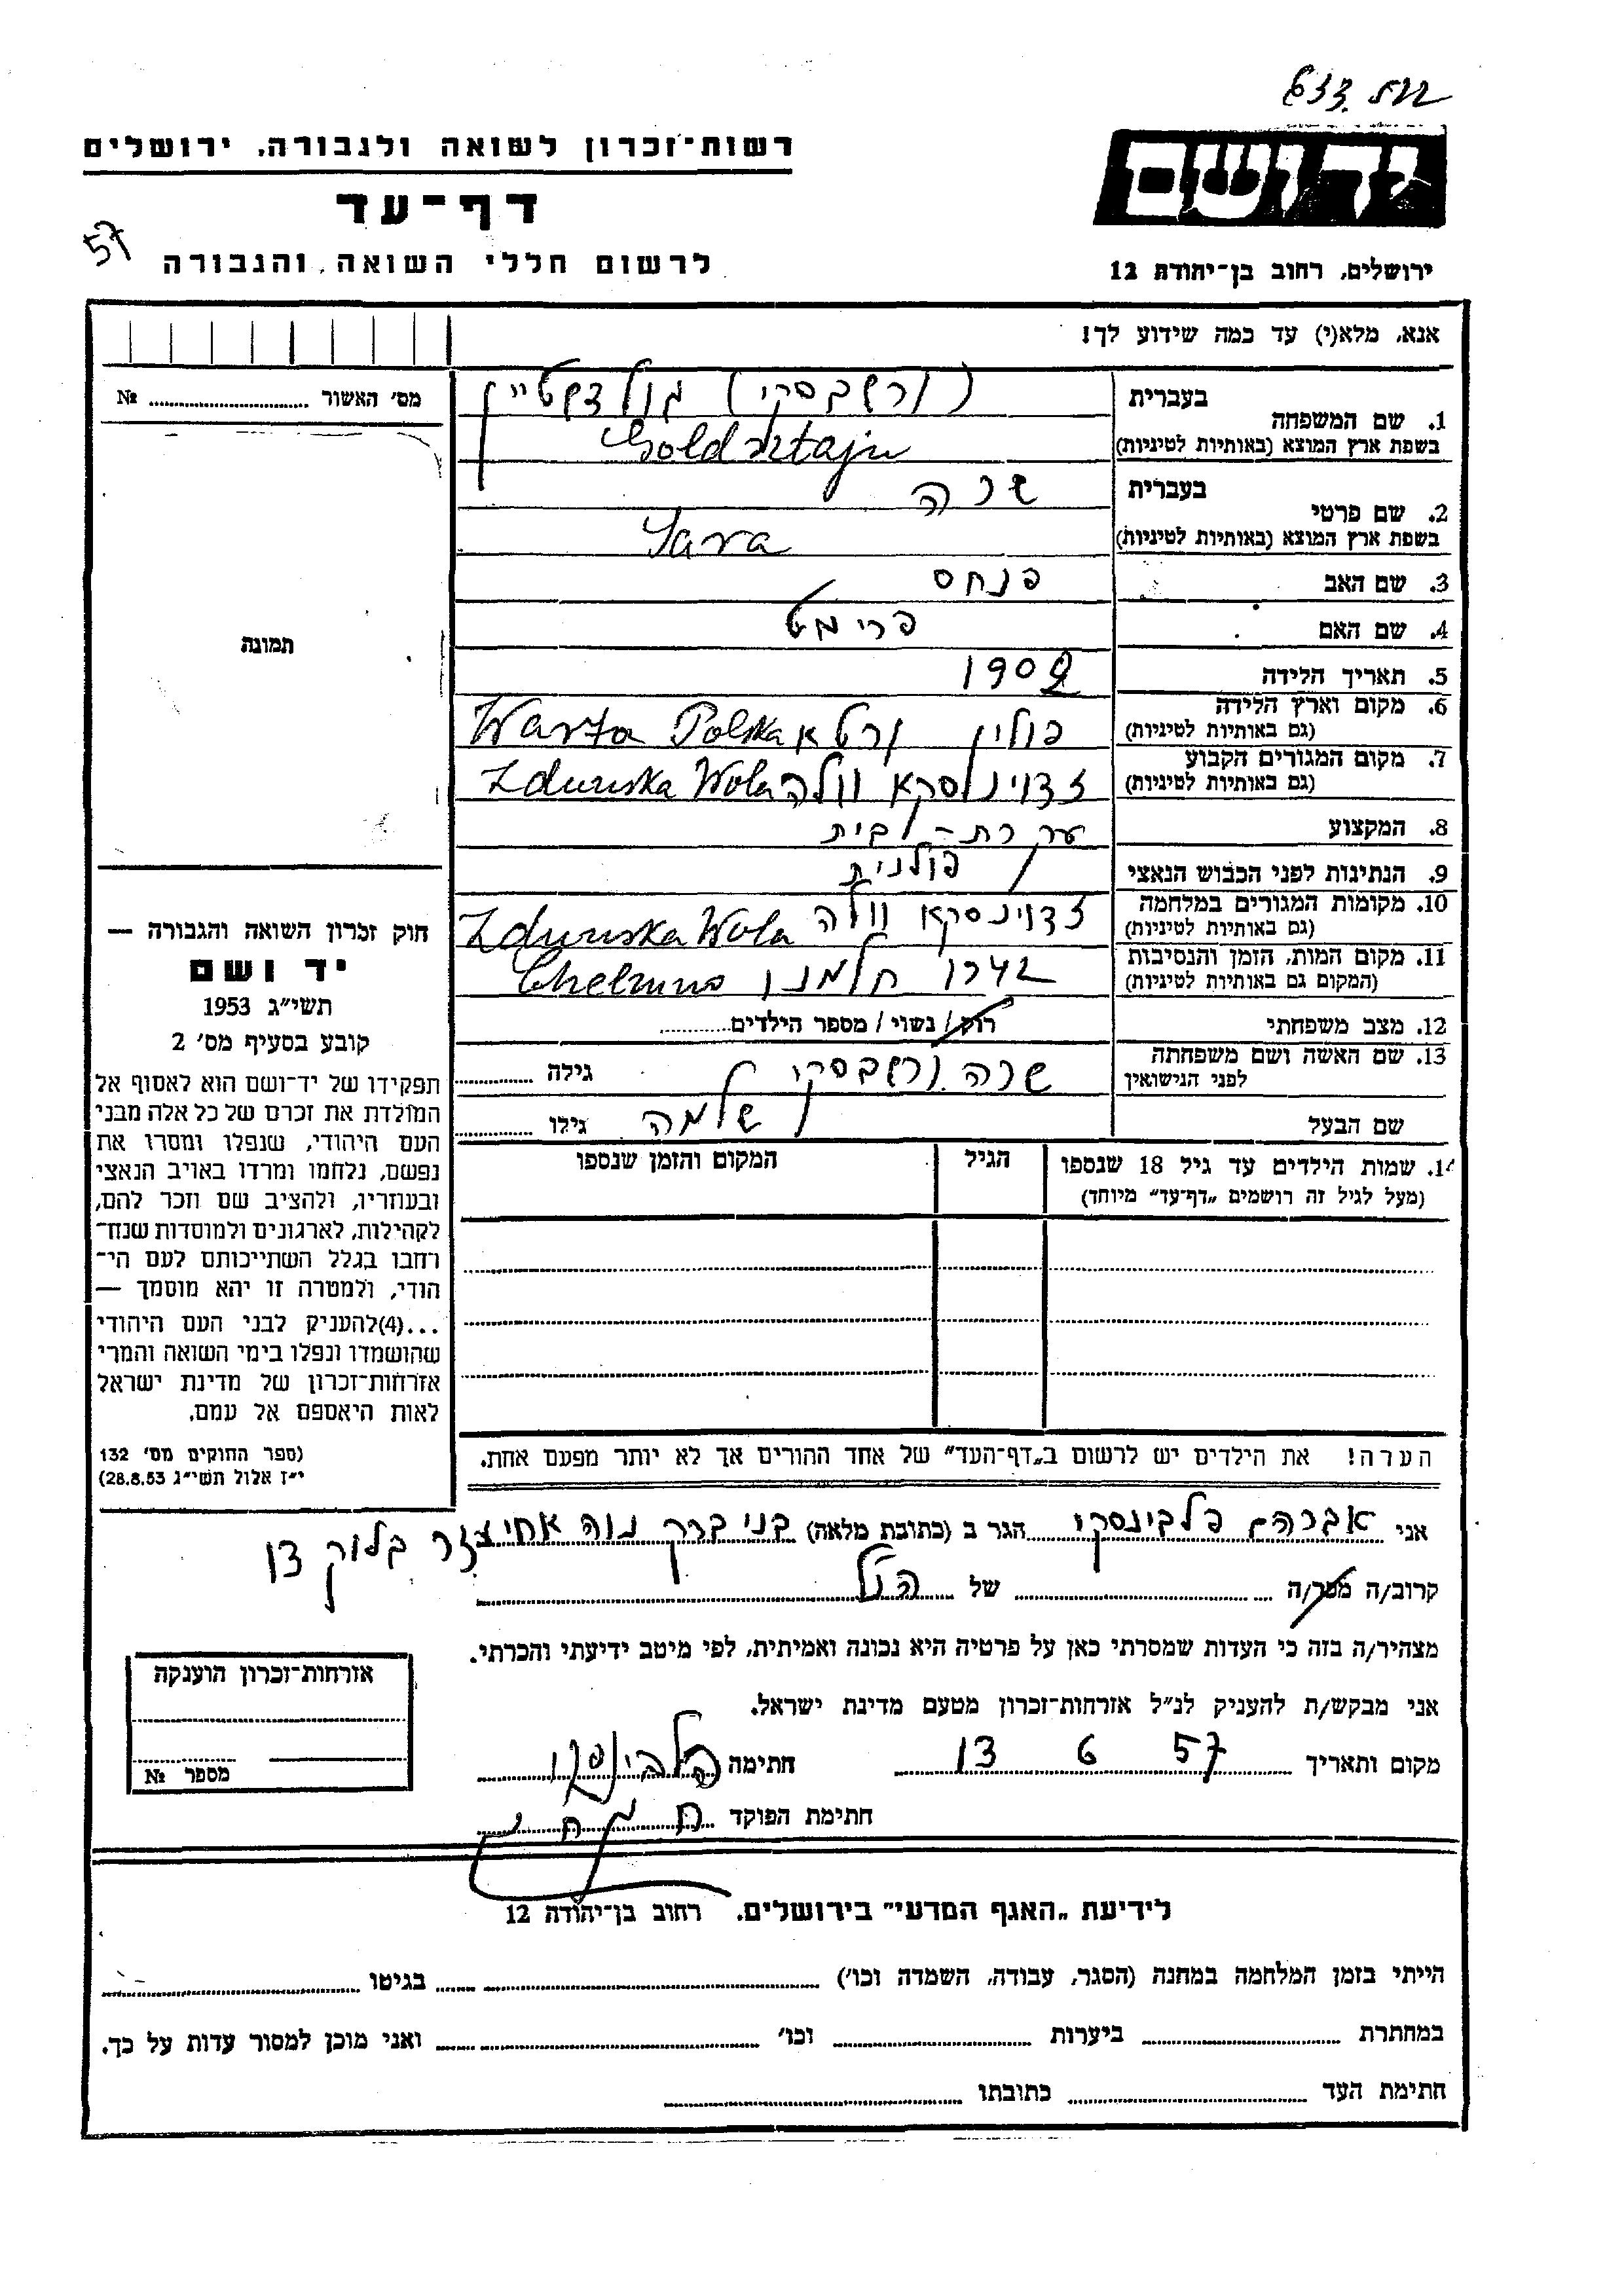 ידושם
רשות־זכרון לשואה ולגבורה, ירושלים
דף־עד
לרשום חללי השואה והגבורה
57
ירושלים, רחוב בן־יהודה 12
אנא, מלא(י) עד כמה שידוע לך!
מס׳ האשור № 
תמונה
1. שם המשפחה בעברית (ורשבסקי) גולדשטיין
בשפת ארץ המוצא (באותיות לטיניות) Goldsztajn
2. שם פרטי בעברית שרה
בשפת ארץ המוצא (באותיות לטיניות) Sara
3. שם האב פנחס
4. שם האם פרימט
5. תאריך הלידה 1902
6. מקום וארץ הלידה (גם באותיות לטיניות) פולין ורטא Warta Polska
7. מקום המגורים הקבוע (גם באותיות לטיניות) זדוינסקא וולה Zdunska Wola
8. המקצוע עקרת-בית
9. הנתינות לפני הכבוש הנאצי פולנית
10. מקומות המגורים במלחמה (גם באותיות לטיניות) זדוינסקא וולה Zdunska Wola
11. מקום המות, הזמן והנסיבות (המקום גם באותיות לטיניות) 1942 חלמנו Chelmno
12. מצב משפחתי רווק / נשוי / מספר הילדים
13. שם האשה ושם משפחתה לפני הנישואין שרה ורשבסקי גילה
שם הבעל שלמה גילו
14. שמות הילדים עד גיל 18 שנספו הגיל המקום והזמן שנספו
(מעל לגיל זה רושמים „דף־עד״ מיוחד)
הערה! את הילדים יש לרשום ב„דף־העד״ של אחד ההורים אך לא יותר מפעם אחת.
חוק זכרון השואה והגבורה —
יד ושם
תשי״ג 1953
קובע בסעיף מס׳ 2
תפקידו של יד־ושם הוא לאסוף אל
המולדת את זכרם של כל אלה מבני
העם היהודי, שנפלו ומסרו את
נפשם, נלחמו ומרדו באויב הנאצי
ובעוזריו, ולהציב שם וזכר להם,
לקהילות, לארגונים ולמוסדות שנח־
רחבו בגלל השתייכותם לעם הי־
הודי, ולמטרה זו יהא מוסמך —
...(4)להעניק לבני העם היהודי
שהושמדו ונפלו בימי השואה והמרי
אזרחות־זכרון של מדינת ישראל
לאות היאספם אל עמם.
(ספר החוקים מס׳ 132
י״ז אלול תשי״ג 28.8.53)
אני אברהם פלבינסקי הגר ב (כתובת מלאה) בני ברק נוה אחיעזר בלוק 13
קרוב/ה מכר/ה של הנ״ל
מצהיר/ה בזה כי העדות שמסרתי כאן על פרטיה היא נכונה ואמיתית, לפי מיטב ידיעתי והכרתי.
אני מבקש/ת להעניק לנ״ל אזרחות־זכרון מטעם מדינת ישראל.
מקום ותאריך 13 6 57 חתימה פלבינסקי
חתימת הפוקד
אזרחות־זכרון הוענקה
מספר №
לידיעת „האגף המדעי״ בירושלים, רחוב בן־יהודה 12
הייתי בזמן המלחמה במחנה (הסגר, עבודה, השמדה וכו׳) בגיטו
במחתרת ביערות וכו׳ ואני מוכן למסור עדות על כך.
חתימת העד כתובתו